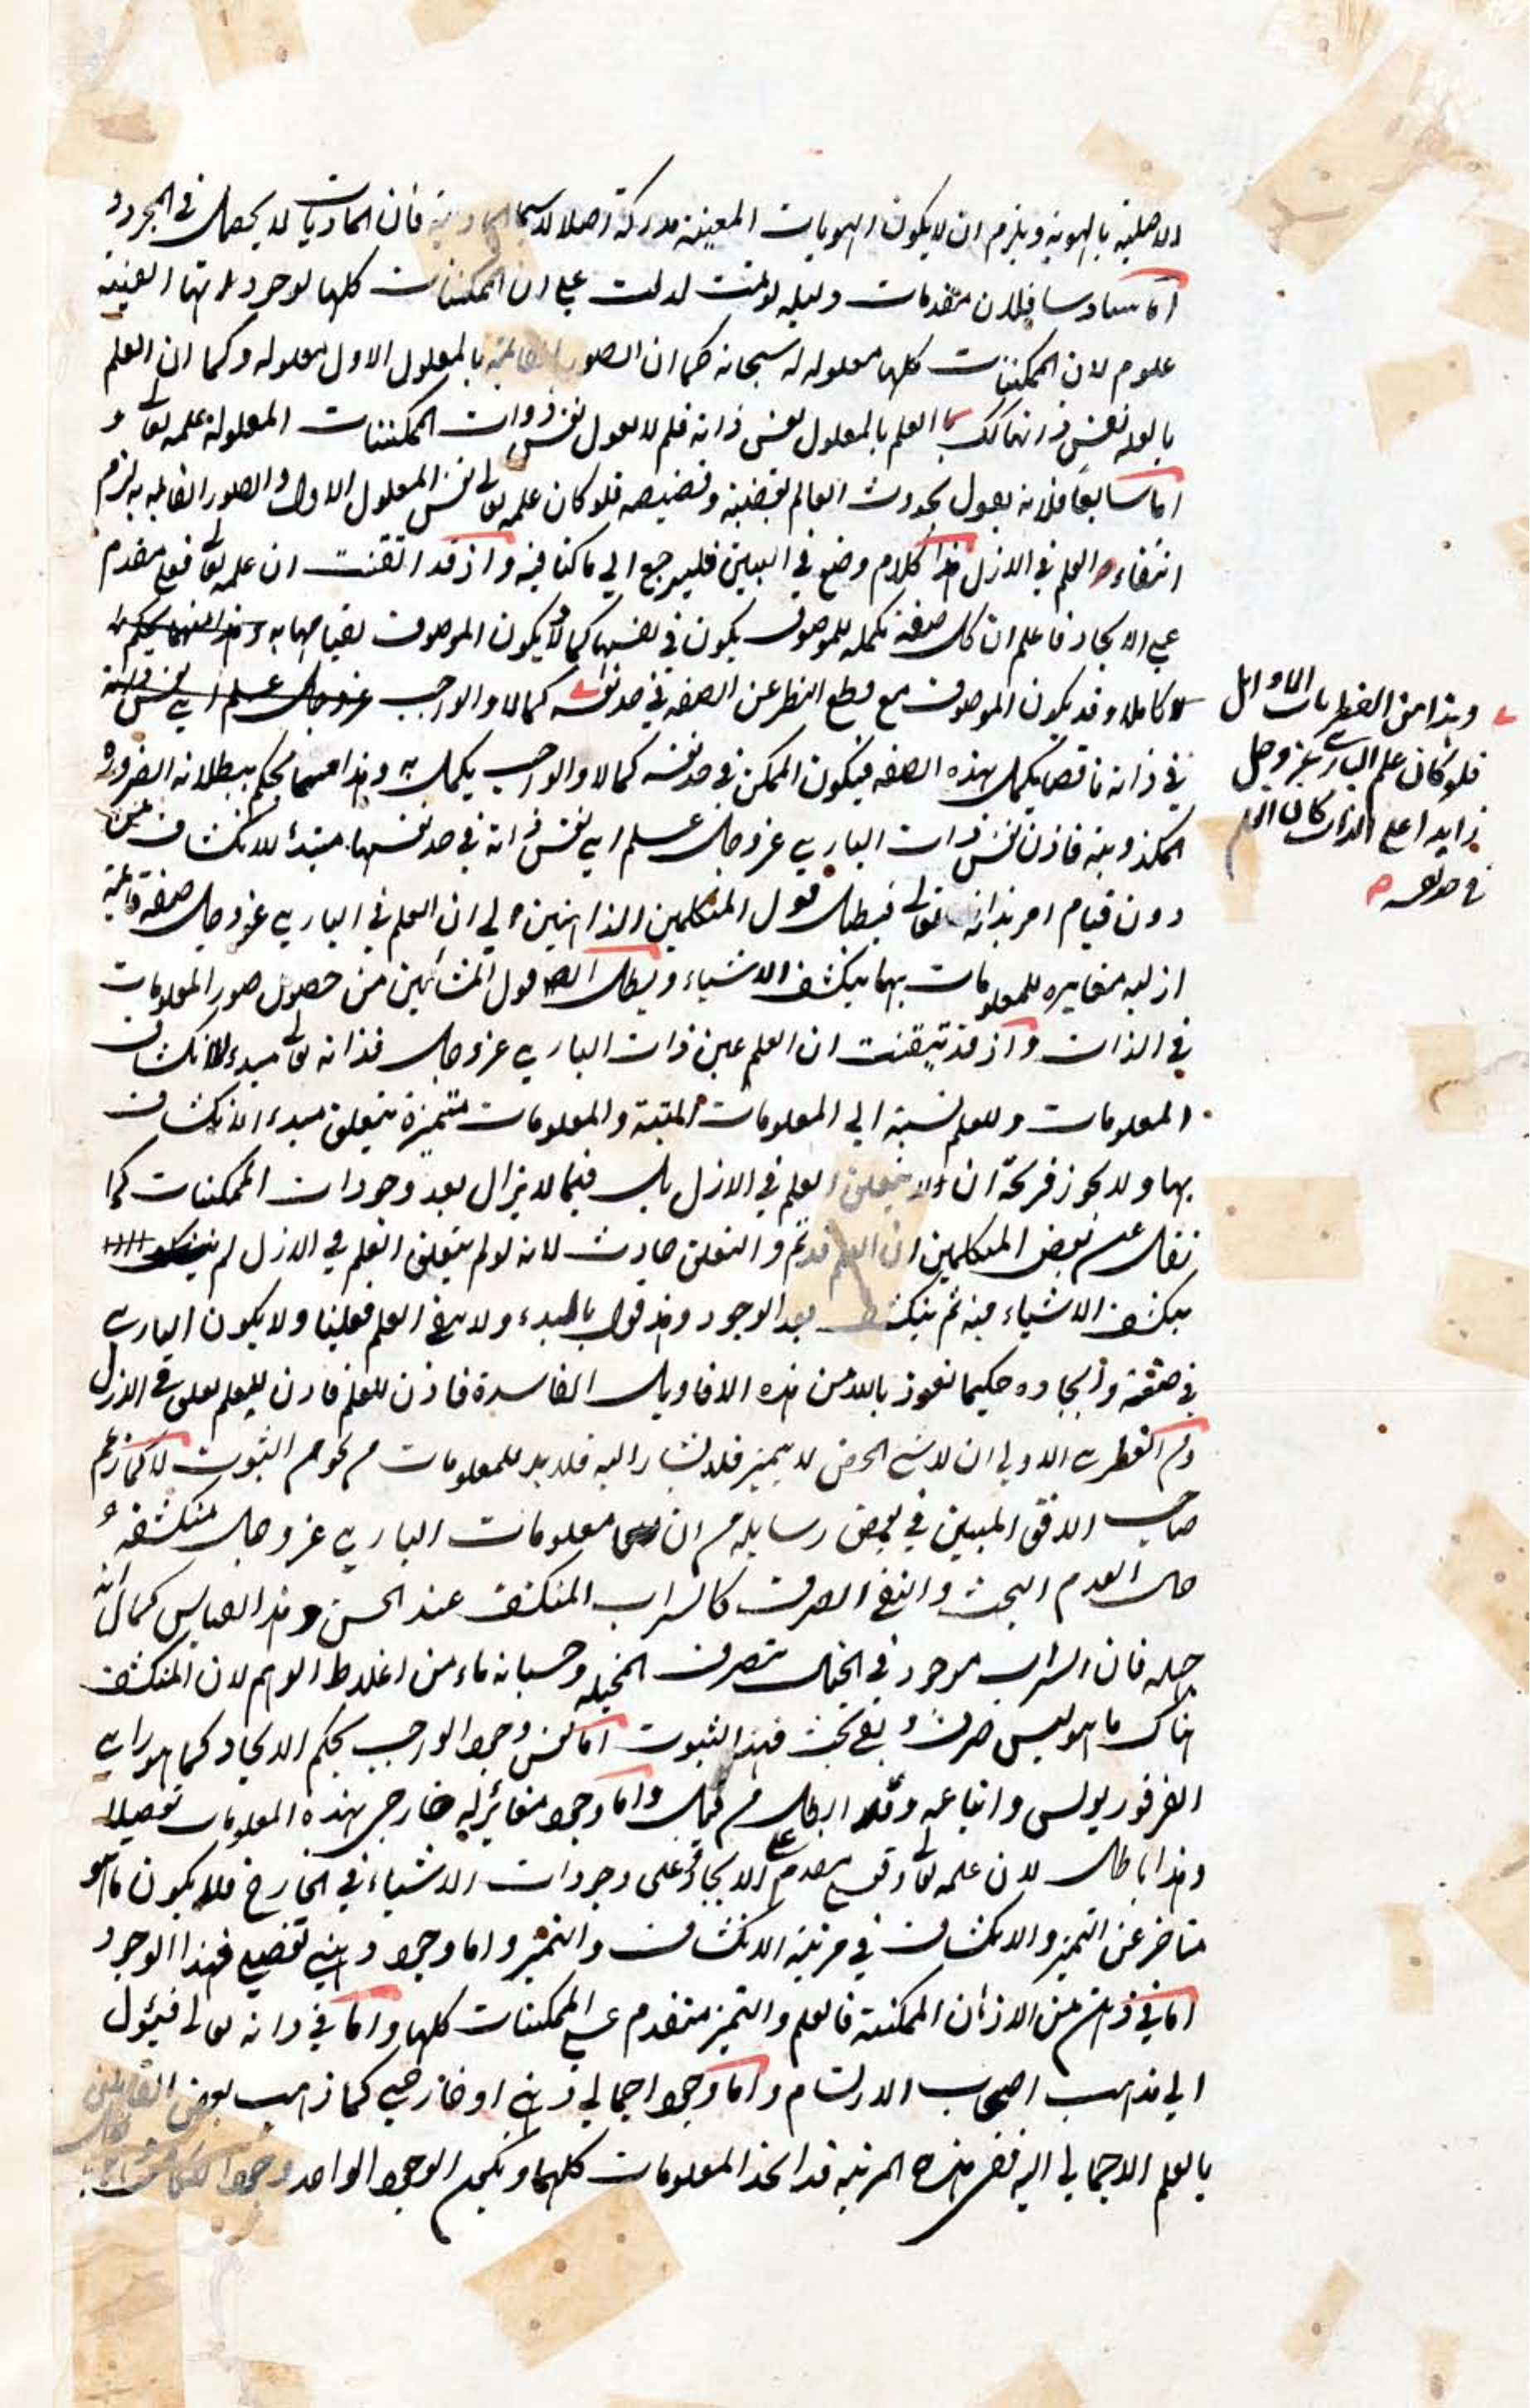 الاصلية بالهوية ويلزم ان لا يكون الهويات المعينة مدركة اصلا لاسيما المادية فان الماديات لا يحصل في المجرد و
اما سادسا فلان مقدمات دليله لو تمت لدلت على ان الممكنات كلها لوجوداتها العينية
علوم لان الممكنات كلها معلوله له سبحانه كما ان الصور القائمة بالمعلول الاول معلوله وكما ان العلم
بالعلة نفس ذاتها كك العلم بالمعلول نفس ذاته فلم لا يقول نفس ذوات الممكنات المعلولة علمه تعالى و
اما سابعا فلانه يقول بحدوث العالم بقضيته وقضيضه فلو كان علمه تعالى نفس المعلول الاول والصور القائمة به لزم
انتفاء العلم في الازل هذا كلام وقع في البين فليرجع الى ما كنا فيه واذ قد اتقنت ان علمه تعالى فعلي مقدم
على الايجاد فاعلم ان كل صفة مكملة للموصوف يكون في نفسها كمالا و يكون الموصوف لقيامها به
كاملا وقد يكون الموصوف مع قطع النظر عن الصفة في حد نفسه كمالا والواجب
في ذاته ناقصا يكمل بهذه الصفة فيكون الممكن في حد نفسه كمالا والواجب يكمل به وهذا مما يحكم ببطلانه الضرورة
فاذن نفس ذات الباري عزوجل علم اي نفس ذاته في حد نفسها مبدء للانكشاف من
دون قيام امر بذاته تعالى فبطل قول المتكلمين الذاهبين الى ان العلم في الباري عزوجل صفة قائمة
ازلية مغايرة للمعلومات بها ينكشف الاشياء وبطل ايضا قول المشائين من حصول صور المعلومات
في الذات واذ قد تيقنت ان العلم عين ذات الباري عزوجل فذاته تعالى مبدء لانكشاف
المعلومات وللعلم نسبة الى المعلومات المتميزة والمعلومات متميزة يتعلق مبدء الانكشاف
بها ولا يجوز ان لا يتعلق العلم في الازل بل فيما لا يزال بعد وجودات الممكنات كما
نقل عن بعض المتكلمين ان العلم قديم والتعلق حادث لانه لو لم يتعلق العلم في الازل لم
ينكشف الاشياء فيه ثم ينكشف بعد الوجود وهذا قول بالبدء ولا يبقى العلم فعليا ولا يكون الباري
في صنعه وايجاده حكيما نعوذ بالله من هذه الاقاويل الفاسدة فاذن للعلم تعلق في الازل
ومن الفطري الاولي ان لاشئ المحض لا يتميز فلا يشار اليه فلا بد للمعلومات من نحو من الثبوت لا كما زعم
صاحب الافق المبين في بعض رسايله من ان معلومات الباري عزوجل منكشفة
حال العدم البحت والنفي الصرف كالسراب المنكشف عند الحس وهذا القياس
فان السراب موجود في الخيال بتصرف المخيلة وحسبانه ماء من اغلاط الوهم لان المنكشف
هناك ما هو ليس صرف و نفي بحت فهذا الثبوت اما نفس وجود الواجب بحكم الايجاد كما هو راي
الفرفوريوس واتباعه وقد ابطل من قبل واما وجود مغائر له خارجي بهذه المعلومات تفصيلا
وهذا باطل لان علمه تعالى مقدم على الايجاد وعلى وجودات الاشياء في الخارج فلا يكون ما هو
متاخر عن التميز والانكشاف في مرتبة الانكشاف والتميز واما وجود ذهني تفصيلي فهذا الوجود
اما في ذهن من الاذهان الممكنة فالعلم والتميز متقدم على الممكنات كلها واما في ذاته تعالى فيئول
الى مذهب اصحاب الارتسام واما وجود اجمالي ذهني او خارجي كما ذهب بعض القائلين
بالعلم الاجمالي اليه ففي هذه المرتبة قد اتحد المعلومات كلها الوجود الواحد
وهذا من الفطريات الاوائل
فلو كان علم الباري عزوجل
زايدا على الذات كان العلم
في حد نفسه